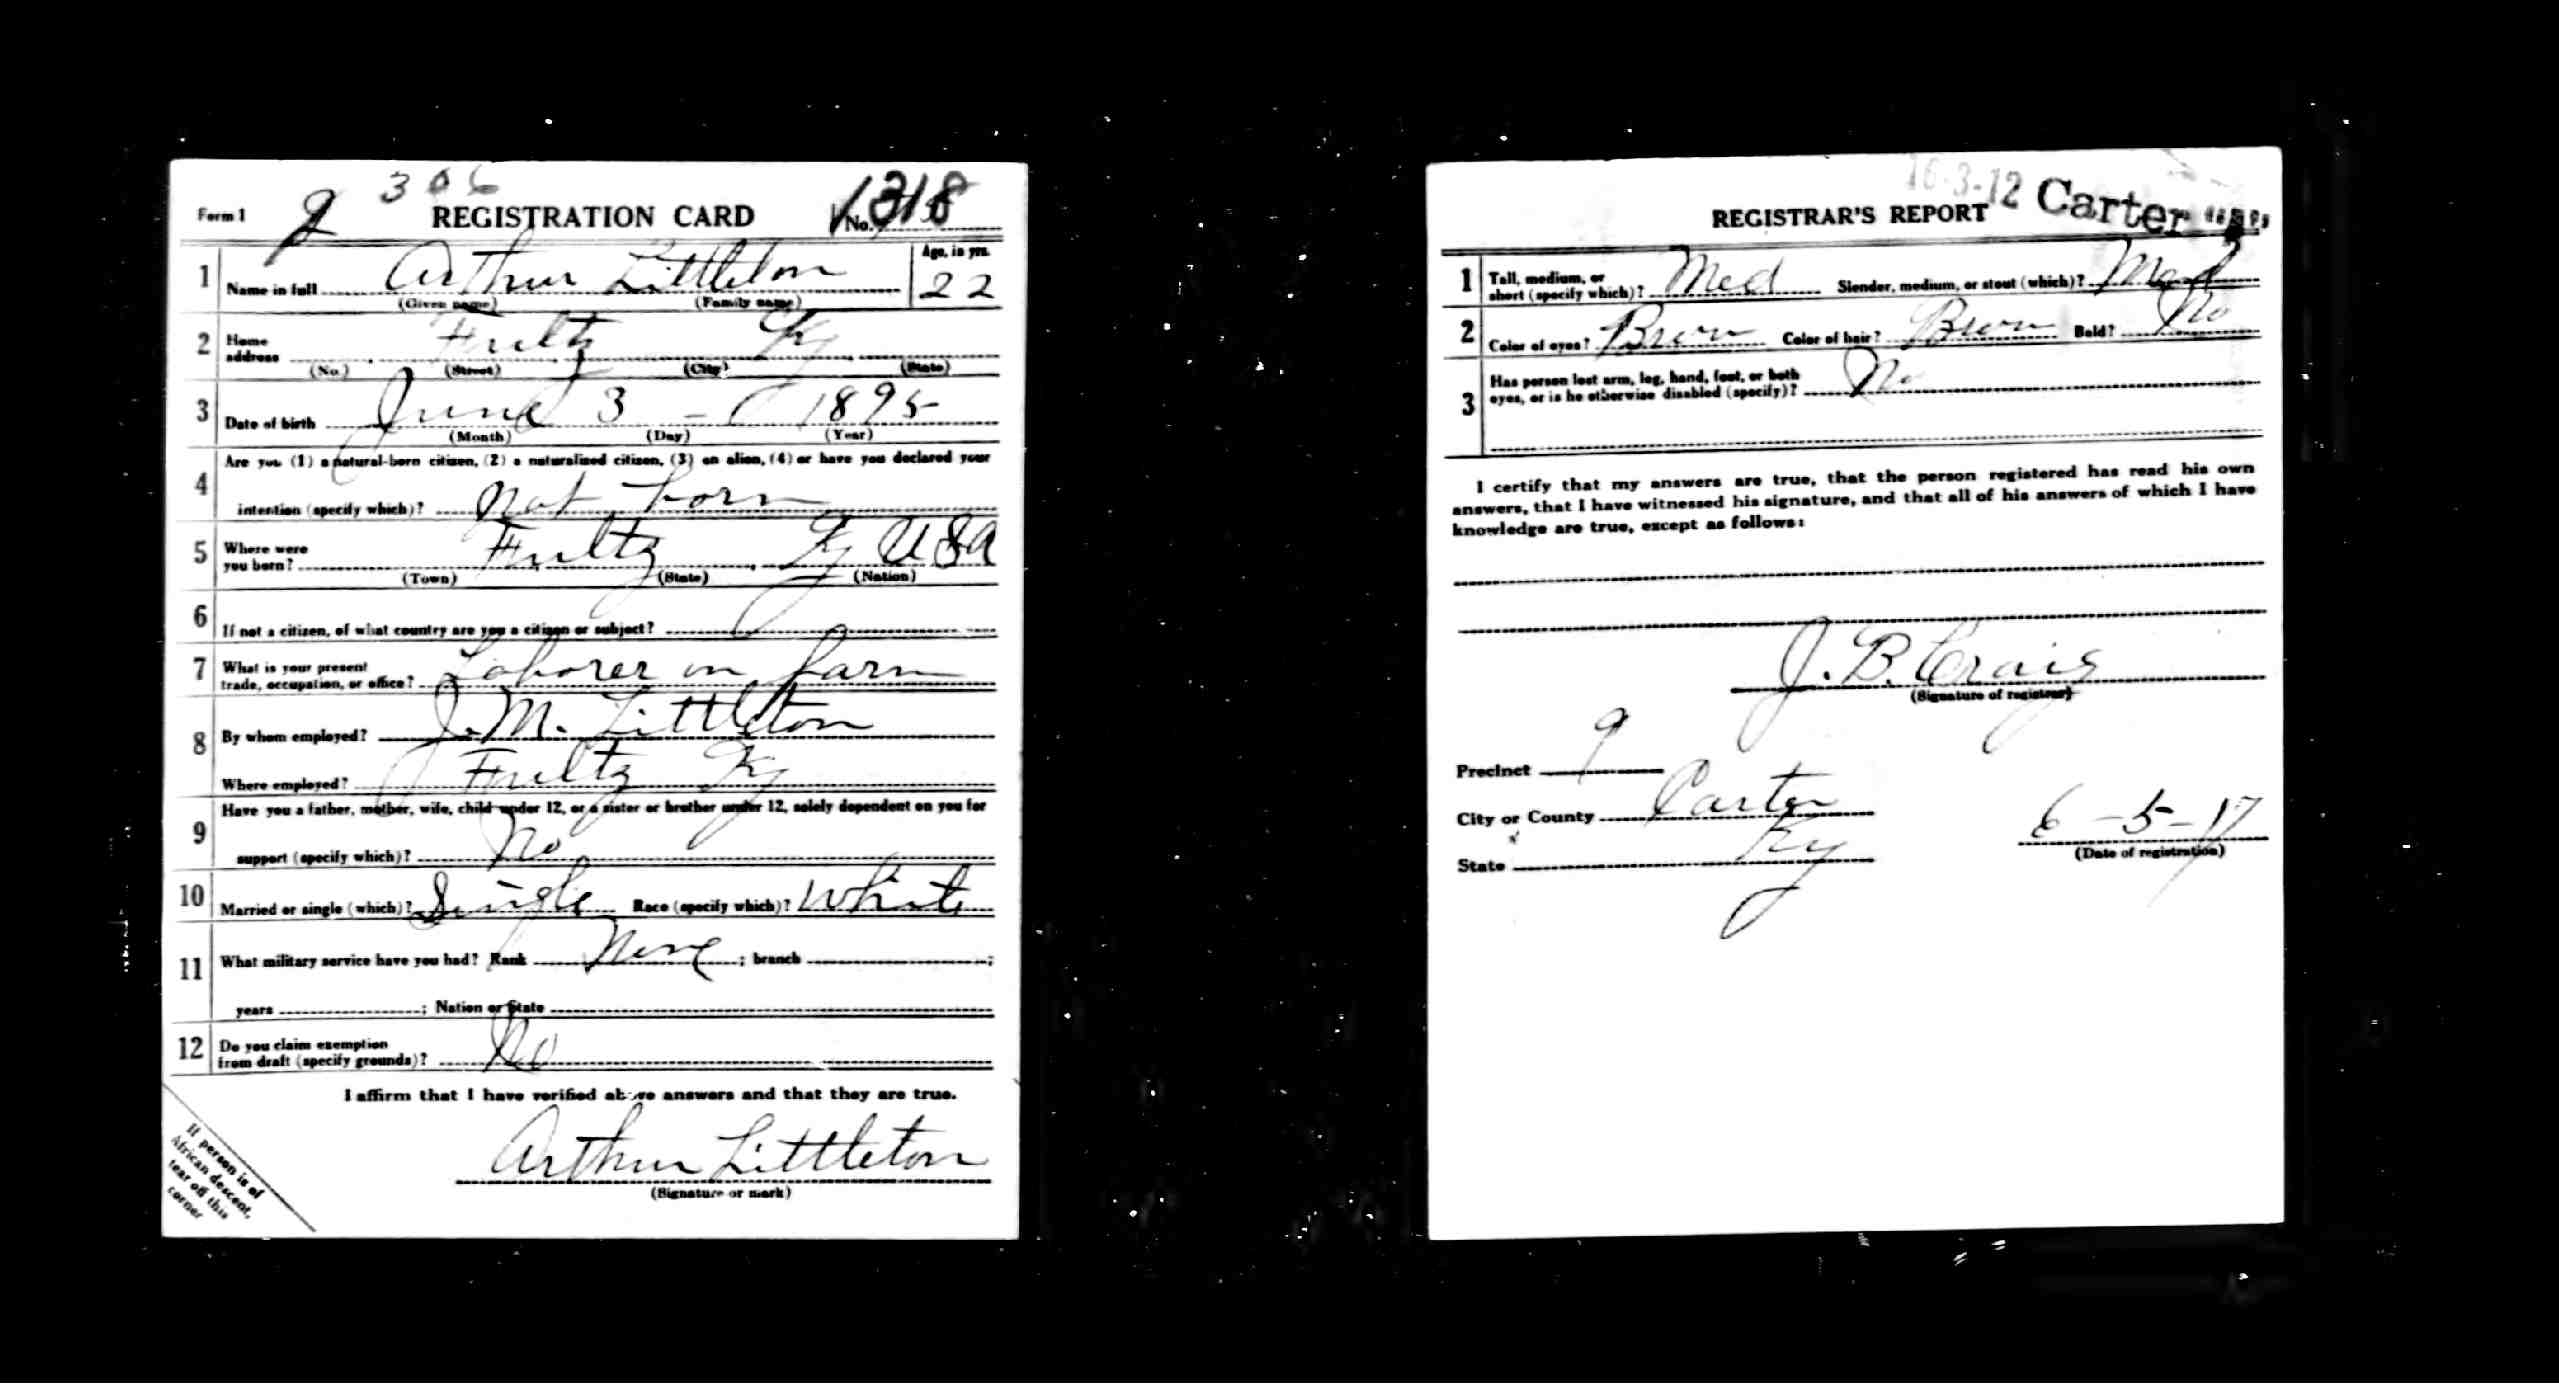 306
Form 1 2 REGISTRATION CARD No. 1318
1 Name in full Arthur Littleton Age, in yrs. 22
(Given name) (Family name)
2 Home address Fultz Ky
(No.) (Street) (City) (State)
3 Date of birth June 3 - 1895
(Month) (Day) (Year)
4 Are you (1) a natural-born citizen, (2) a naturalized citizen, (3) an alien, (4) or have you declared your
intention (specify which)? Nat born
5 Where were you born? Fultz Ky USA
(Town) (State) (Nation)
6 If not a citizen, of what country are you a citizen or subject?
7 What is your present trade, occupation, or office? Laborer on farm
8 By whom employed? J. M. Littleton
Where employed? Fultz Ky
9 Have you a father, mother, wife, child under 12, or a sister or brother under 12, solely dependent on you for
support (specify which)? No
10 Married or single (which)? Single Race (specify which)? White
11 What military service have you had? Rank None ; branch ;
years ; Nation or State
12 Do you claim exemption from draft (specify grounds)? No
I affirm that I have verified above answers and that they are true.
Arthur Littleton
(Signature or mark)
If person is of
African descent,
tear off this
corner
16-3-12 Carter
REGISTRAR'S REPORT
1 Tall, medium, or short (specify which)? Med Slender, medium, or stout (which)? Med
2 Color of eyes? Brown Color of hair? Brown Bald? No
3 Has person lost arm, leg, hand, foot, or both
eyes, or is he otherwise disabled (specify)? No
I certify that my answers are true, that the person registered has read his own
answers, that I have witnessed his signature, and that all of his answers of which I have
knowledge are true, except as follows:
J. B. Craig
(Signature of registrar)
Precinct 9
City or County Carter
State Ky
6-5-17
(Date of registration)